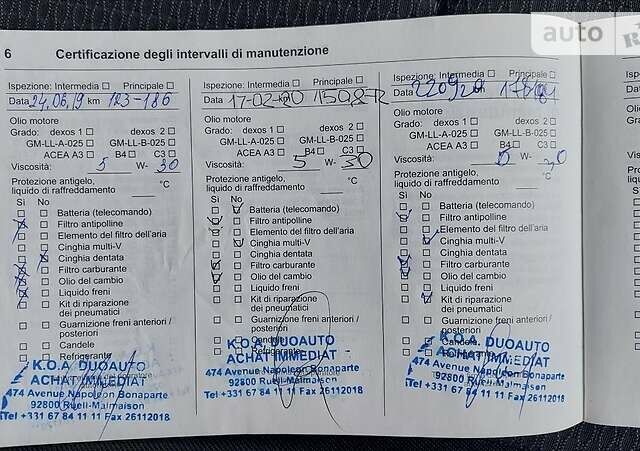 auto
6 Certificazione degli intervalli di manutenzione
Ispezione: Intermedia Principale
Data 24,06,19 km 123-186
Olio motore
Grado: dexos 1 dexos 2
GM-LL-A-025 GM-LL-B-025
ACEA A3 B4 C3
Viscosità: 5 W- 30
Protezione antigelo,
liquido di raffreddamento °C
Sì No
Batteria (telecomando)
Filtro antipolline
Elemento del filtro dell'aria
Cinghia multi-V
Cinghia dentata
Filtro carburante
Olio del cambio
Liquido freni
Kit di riparazione
dei pneumatici
Guarnizione freni anteriori /
posteriori
Candele
Refrigerante
K.O.A. DUOAUTO
ACHAT IMMEDIAT
474 Avenue Napoléon Bonaparte
92800 Rueil-Malmaison
Tel +331 67 84 11 11 Fax 26112018
Ispezione: Intermedia Principale
Data 17-02-20
Olio motore
Grado: dexos 1 dexos 2
GM-LL-A-025 GM-LL-B-025
ACEA A3 B4 C3
Viscosità: 5 W- 30
Protezione antigelo,
liquido di raffreddamento °C
Sì No
Batteria (telecomando)
Filtro antipolline
Elemento del filtro dell'aria
Cinghia multi-V
Cinghia dentata
Filtro carburante
Olio del cambio
Liquido freni
Kit di riparazione
dei pneumatici
Guarnizione freni anteriori /
posteriori
Candele
Refrigerante
K.O.A. DUOAUTO
ACHAT IMMEDIAT
474 Avenue Napoléon Bonaparte
92800 Rueil-Malmaison
Tel +331 67 84 11 11 Fax 26112018
Ispezione: Intermedia Principale
Data km
Olio motore
Grado: dexos 1 dexos 2
GM-LL-A-025 GM-LL-B-025
ACEA A3 B4 C3
Viscosità: W-
Protezione antigelo,
liquido di raffreddamento °C
Sì No
Batteria (telecomando)
Filtro antipolline
Elemento del filtro dell'aria
Cinghia multi-V
Cinghia dentata
Filtro carburante
Olio del cambio
Liquido freni
Kit di riparazione
dei pneumatici
Guarnizione freni anteriori /
posteriori
Candele
K.O.A. DUOAUTO
ACHAT IMMEDIAT
474 Avenue Napoléon Bonaparte
92800 Rueil-Malmaison
Tel +331 67 84 11 11 Fax 26112018